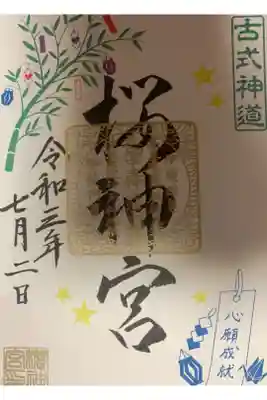 古式神道
桜神宮
令和三年
七月二日
心願成就